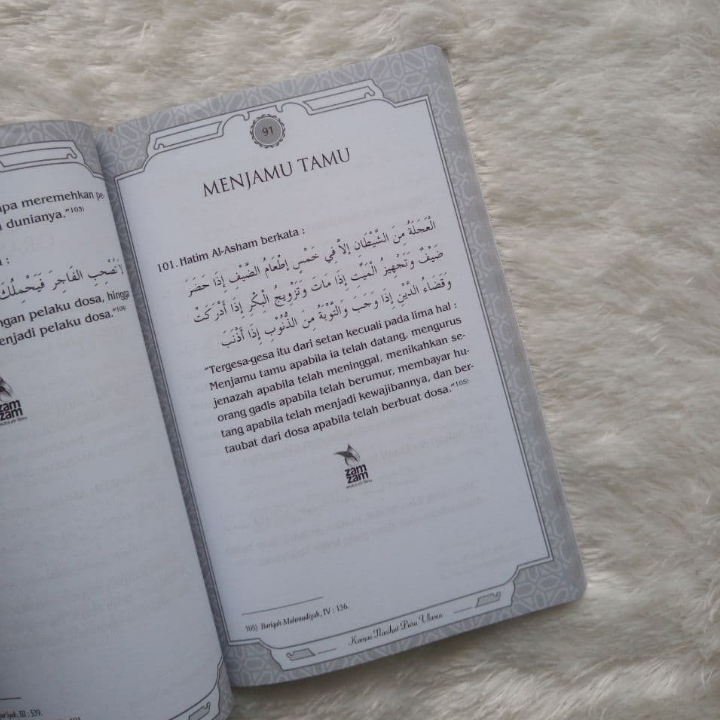 apa meremehkan pe
dunianya."103)
:
الْفَاجِرَ فَيَحْمِلُكَ
ngan pelaku dosa, hingga
enjadi pelaku dosa."104)
zam
zam
91
MENJAMU TAMU
101. Hatim Al-Asham berkata :
الْعَجَلَةُ مِنَ الشَّيْطَانِ إِلاَّ فِي خَمْسٍ إِطْعَامُ الضَّيْفِ إِذَا حَضَرَ
ضَيْفٌ وَتَجْهِيزُ الْمَيِّتِ إِذَا مَاتَ وَتَزْوِيجُ الْبِكْرِ إِذَا أَدْرَكَتْ
وَقَضَاءُ الدَّيْنِ إِذَا وَجَبَ وَالتَّوْبَةُ مِنَ الذُّنُوْبِ إِذَا أَذْنَبَ
"Tergesa-gesa itu dari setan kecuali pada lima hal :
Menjamu tamu apabila ia telah datang, mengurus
jenazah apabila telah meninggal, menikahkan se-
orang gadis apabila telah berumur, membayar hu-
tang apabila telah menjadi kewajibannya, dan ber-
taubat dari dosa apabila telah berbuat dosa."105)
zam
zam
105) Bariqah Mahmudiyah, IV : 136.
Kanzu Nasihat Para Ulama
III : 339.